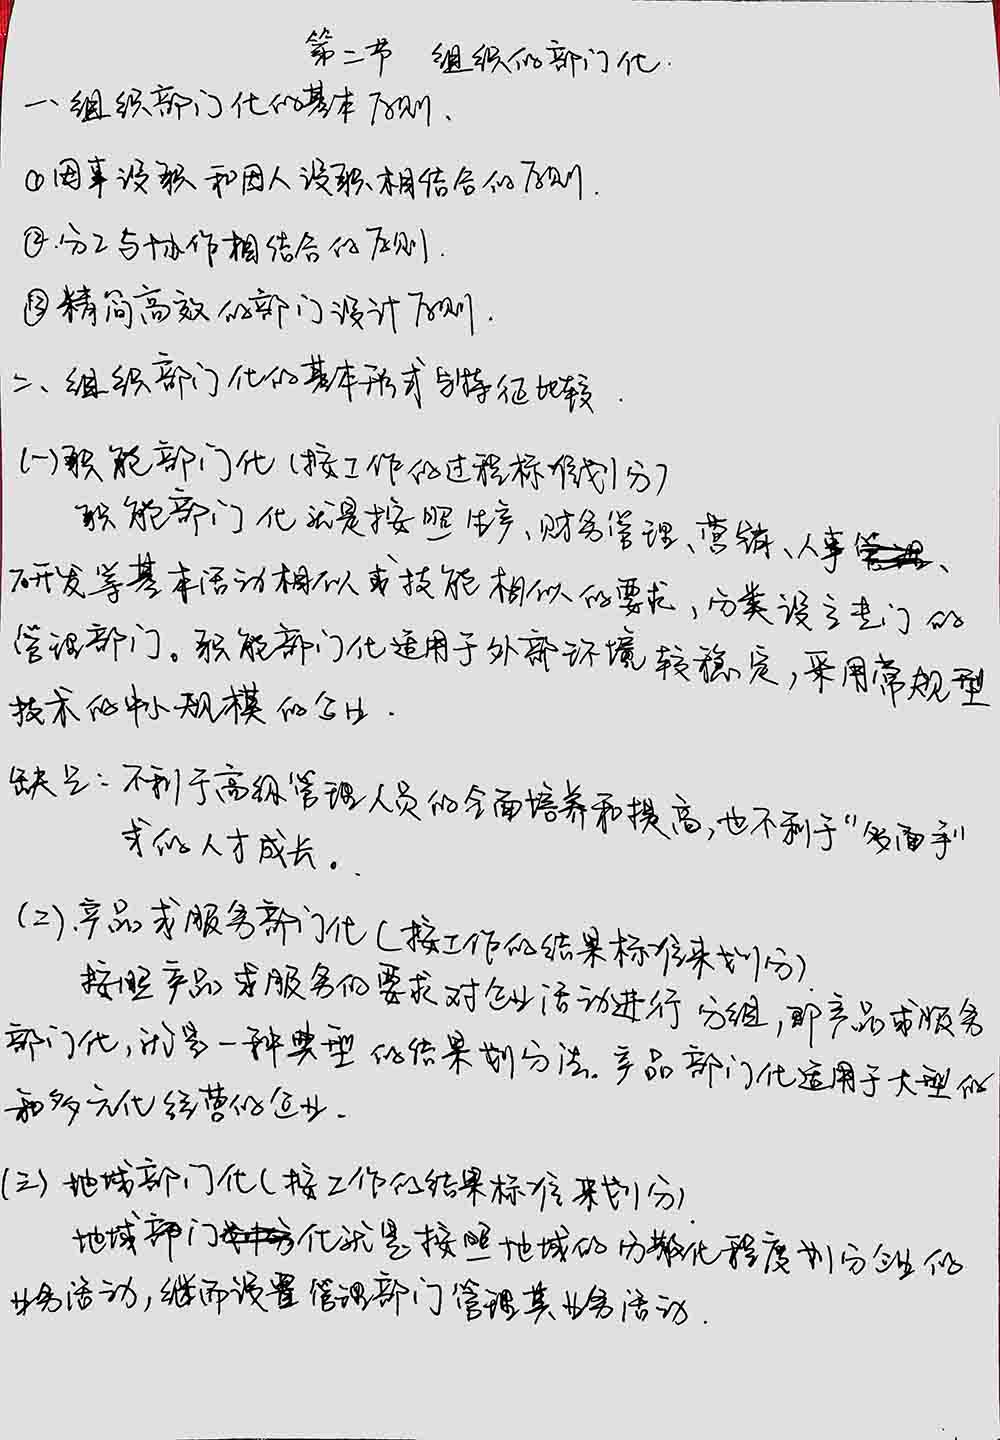 第二节 组织的部门化.
一、组织部门化的基本原则、
①因事设职和因人设职相结合的原则.
②.分工与协作相结合的原则.
③精简高效的部门设计原则.
二、组织部门化的基本形式与特征比较.
(一)职能部门化(按工作的过程标准划分)
职能部门化就是按照生产、财务管理、营销、人事、
研发等基本活动相似或技能相似的要求,分类设立专门的
管理部门。职能部门化适用于外部环境较稳定,采用常规型
技术的中小规模的企业.
缺点:不利于高级管理人员的全面培养和提高,也不利于“多面手”
式的人才成长。
(二).产品或服务部门化(按工作的结果标准来划分)
按照产品或服务的要求对企业活动进行分组,即产品或服务
部门化,就是一种典型的结果划分法.产品部门化适用于大型的
和多元化经营的企业.
(三)地域部门化(按工作的结果标准来划分)
地域部门化就是按照地域的分散化程度划分企业的
业务活动,继而设置管理部门管理其业务活动.